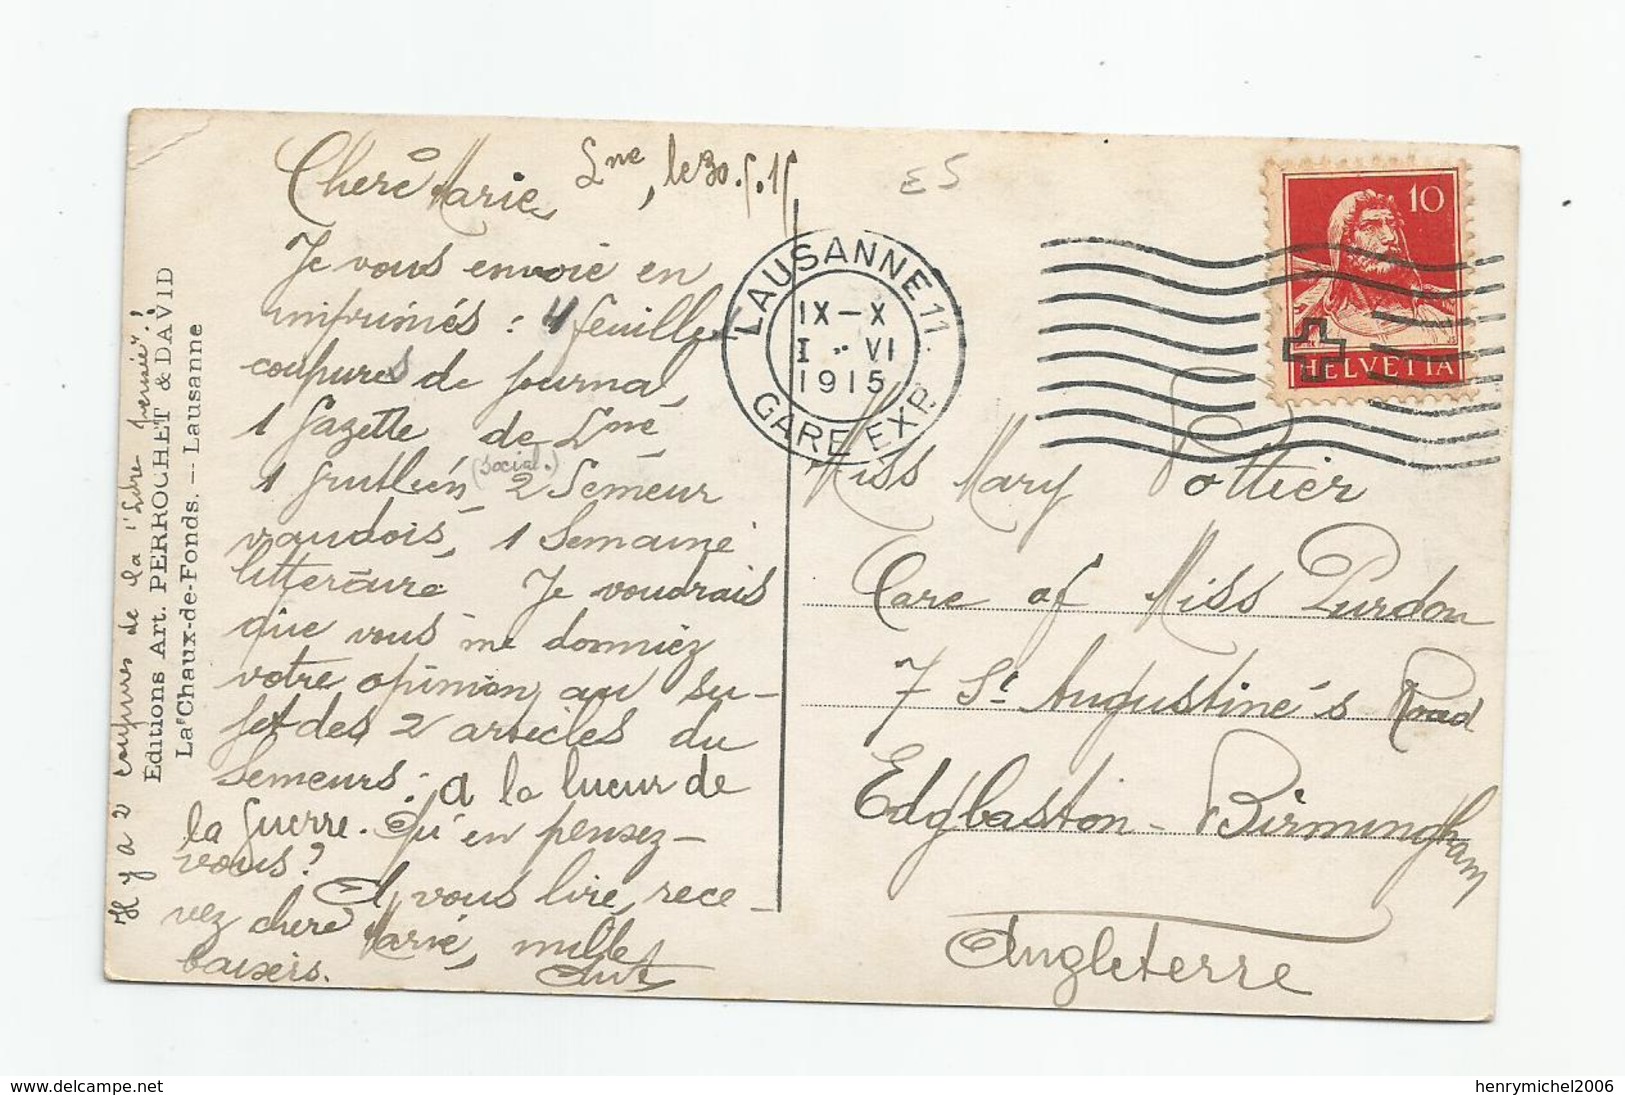 Chère Marie, Lne, le 30.5.15
Je vous envoie en
imprimés : 4 feuilles
coupures de journal,
1 gazette de Lne
1 grutléen (social.) 2 Semeur
vaudois, 1 Semaine
littéraire Je voudrais
que vous me donniez
votre opinion au su-
jet des 2 articles du
Semeurs : a la lueur de
la guerre. Qu'en pensez-
vous?
A vous lire, rece-
vez chère Marie, mille
baisers.
Il y a 2 coupures de la "Libre pensée"!
Editions Art. PERROCHET & DAVID
La Chaux-de-Fonds. — Lausanne
E5
LAUSANNE 11.
IX–X
I .. VI
1915
GARE EXP.
10
HELVETIA
Miss Mary Pottier
Care of Miss Purdon
7 St Augustine's Road
Edgbaston - Birmingham
Angleterre
www.delcampe.net
henrymichel2006